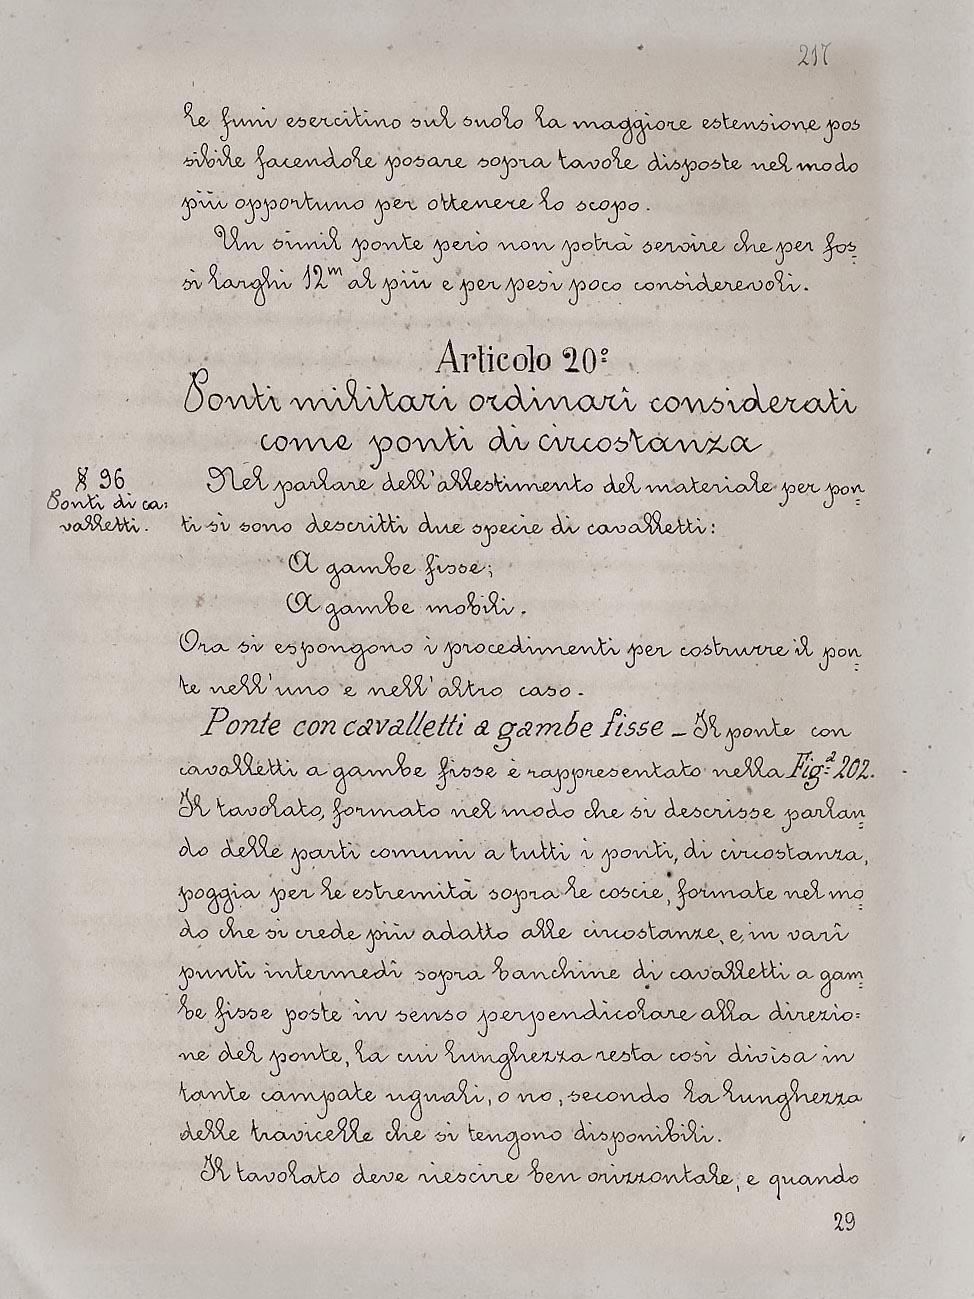 217
le funi esercitino sul suolo la maggiore estensione pos
sibile facendole posare sopra tavole disposte nel modo
più opportuno per ottenere lo scopo.
Un simil ponte però non potrà servire che per fos=
si larghi 12m al più e per pesi poco considerevoli.
Articolo 20º
Ponti militari ordinarî considerati
come ponti di circostanza
§ 96
Ponti di ca=
valletti.
Nel parlare dell'allestimento del materiale per pon=
ti si sono descritti due specie di cavalletti:
A gambe fisse;
A gambe mobili.
Ora si espongono i procedimenti per costrurre il pon=
te nell'uno e nell'altro caso.
Ponte con cavalletti a gambe fisse _ Il ponte con
cavalletti a gambe fisse è rappresentato nella Figª 202.
Il tavolato, formato nel modo che si descrisse parlan=
do delle parti comuni a tutti i ponti, di circostanza,
poggia per le estremità sopra le coscie, formate nel mo=
do che si crede più adatto alle circostanze, e, in varî
punti intermedî sopra banchine di cavalletti a gam=
be fisse poste in senso perpendicolare alla direzio=
ne del ponte, la cui lunghezza resta così divisa in
tante campate uguali, o no, secondo la lunghezza
delle travicelle che si tengono disponibili.
Il tavolato deve riescire ben orizzontale, e quando
29